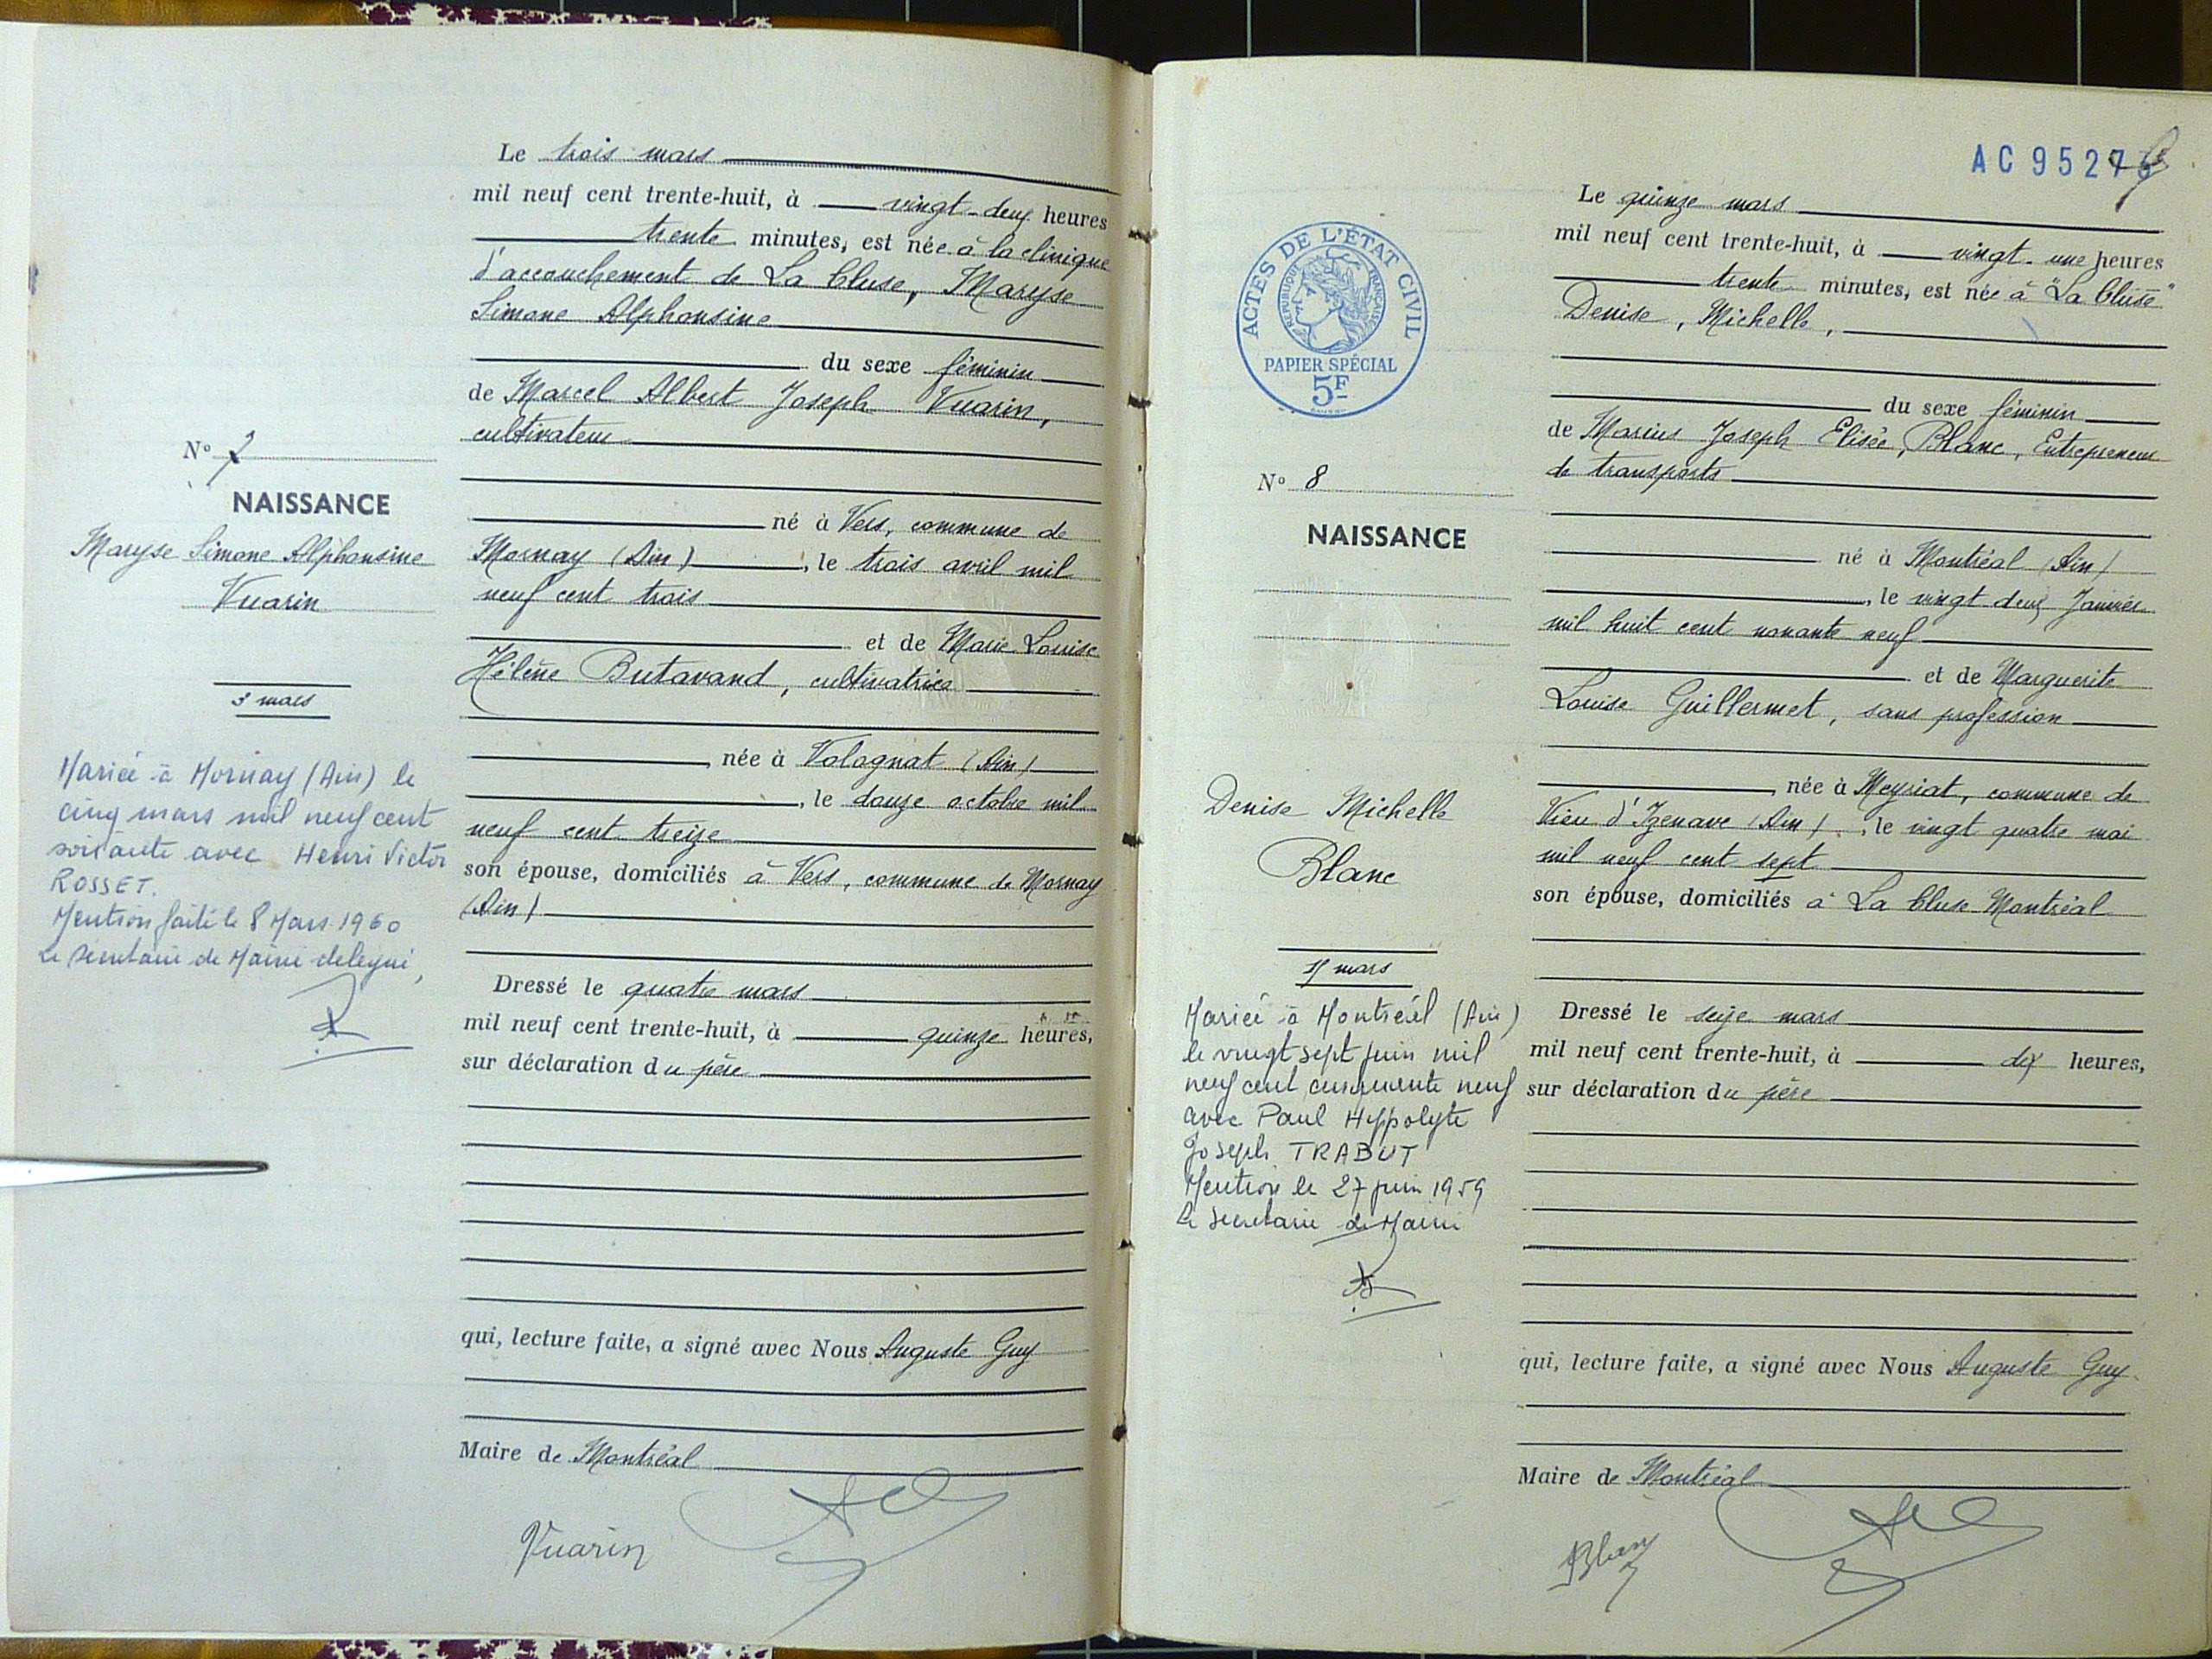 Le trois mars
mil neuf cent trente-huit, à vingt-deux heures
trente minutes, est née à la clinique
d'accouchement de La Cluse, Maryse
Simone Alphonsine
du sexe féminin
de Marcel Albert Joseph Vuarin,
cultivateur
né à Vers, commune de
Mornay (Ain), le trois avril mil
neuf cent trois
et de Marie Louise
Hélène Butavand, cultivatrice
, née à Volognat (Ain)
, le douze octobre mil
neuf cent treize
son épouse, domiciliés à Vers, commune de Mornay
(Ain)
Dressé le quatre mars
mil neuf cent trente-huit, à quinze heures,
sur déclaration du père
qui, lecture faite, a signé avec Nous Auguste Guy
Maire de Montréal
Vuarin
No 7
NAISSANCE
Maryse Simone Alphonsine
Vuarin
3 mars
Mariée à Mornay (Ain) le
cinq mars mil neuf cent
soixante avec Henri Victor
ROSSET.
Mention faite le 8 Mars 1960
Le Secrétaire de Mairie délégué,
AC 9527
ACTES DE L'ÉTAT CIVIL
RÉPUBLIQUE FRANÇAISE
PAPIER SPÉCIAL
5F
No 8
NAISSANCE
Denise Michelle
Blanc
15 mars
Mariée à Montréal (Ain)
le vingt sept juin mil
neuf cent cinquante neuf
avec Paul Hippolyte
Joseph TRABUT
Mention le 27 juin 1959
Le Secrétaire de Mairie
Le quinze mars
mil neuf cent trente-huit, à vingt-une heures
trente minutes, est née à "La Cluse"
Denise, Michelle,
du sexe féminin
de Marius Joseph Elisée, Blanc, Entrepreneur
de transports
né à Montréal (Ain)
, le vingt deux Janvier
mil huit cent nonante neuf
et de Marguerite
Louise Guillermet, sans profession
, née à Meyriat, commune de
Vieu d'Izenave (Ain), le vingt quatre mai
mil neuf cent sept
son épouse, domiciliés à La Cluse Montréal
Dressé le seize mars
mil neuf cent trente-huit, à dix heures,
sur déclaration du père
qui, lecture faite, a signé avec Nous Auguste Guy
Maire de Montréal
Blanc